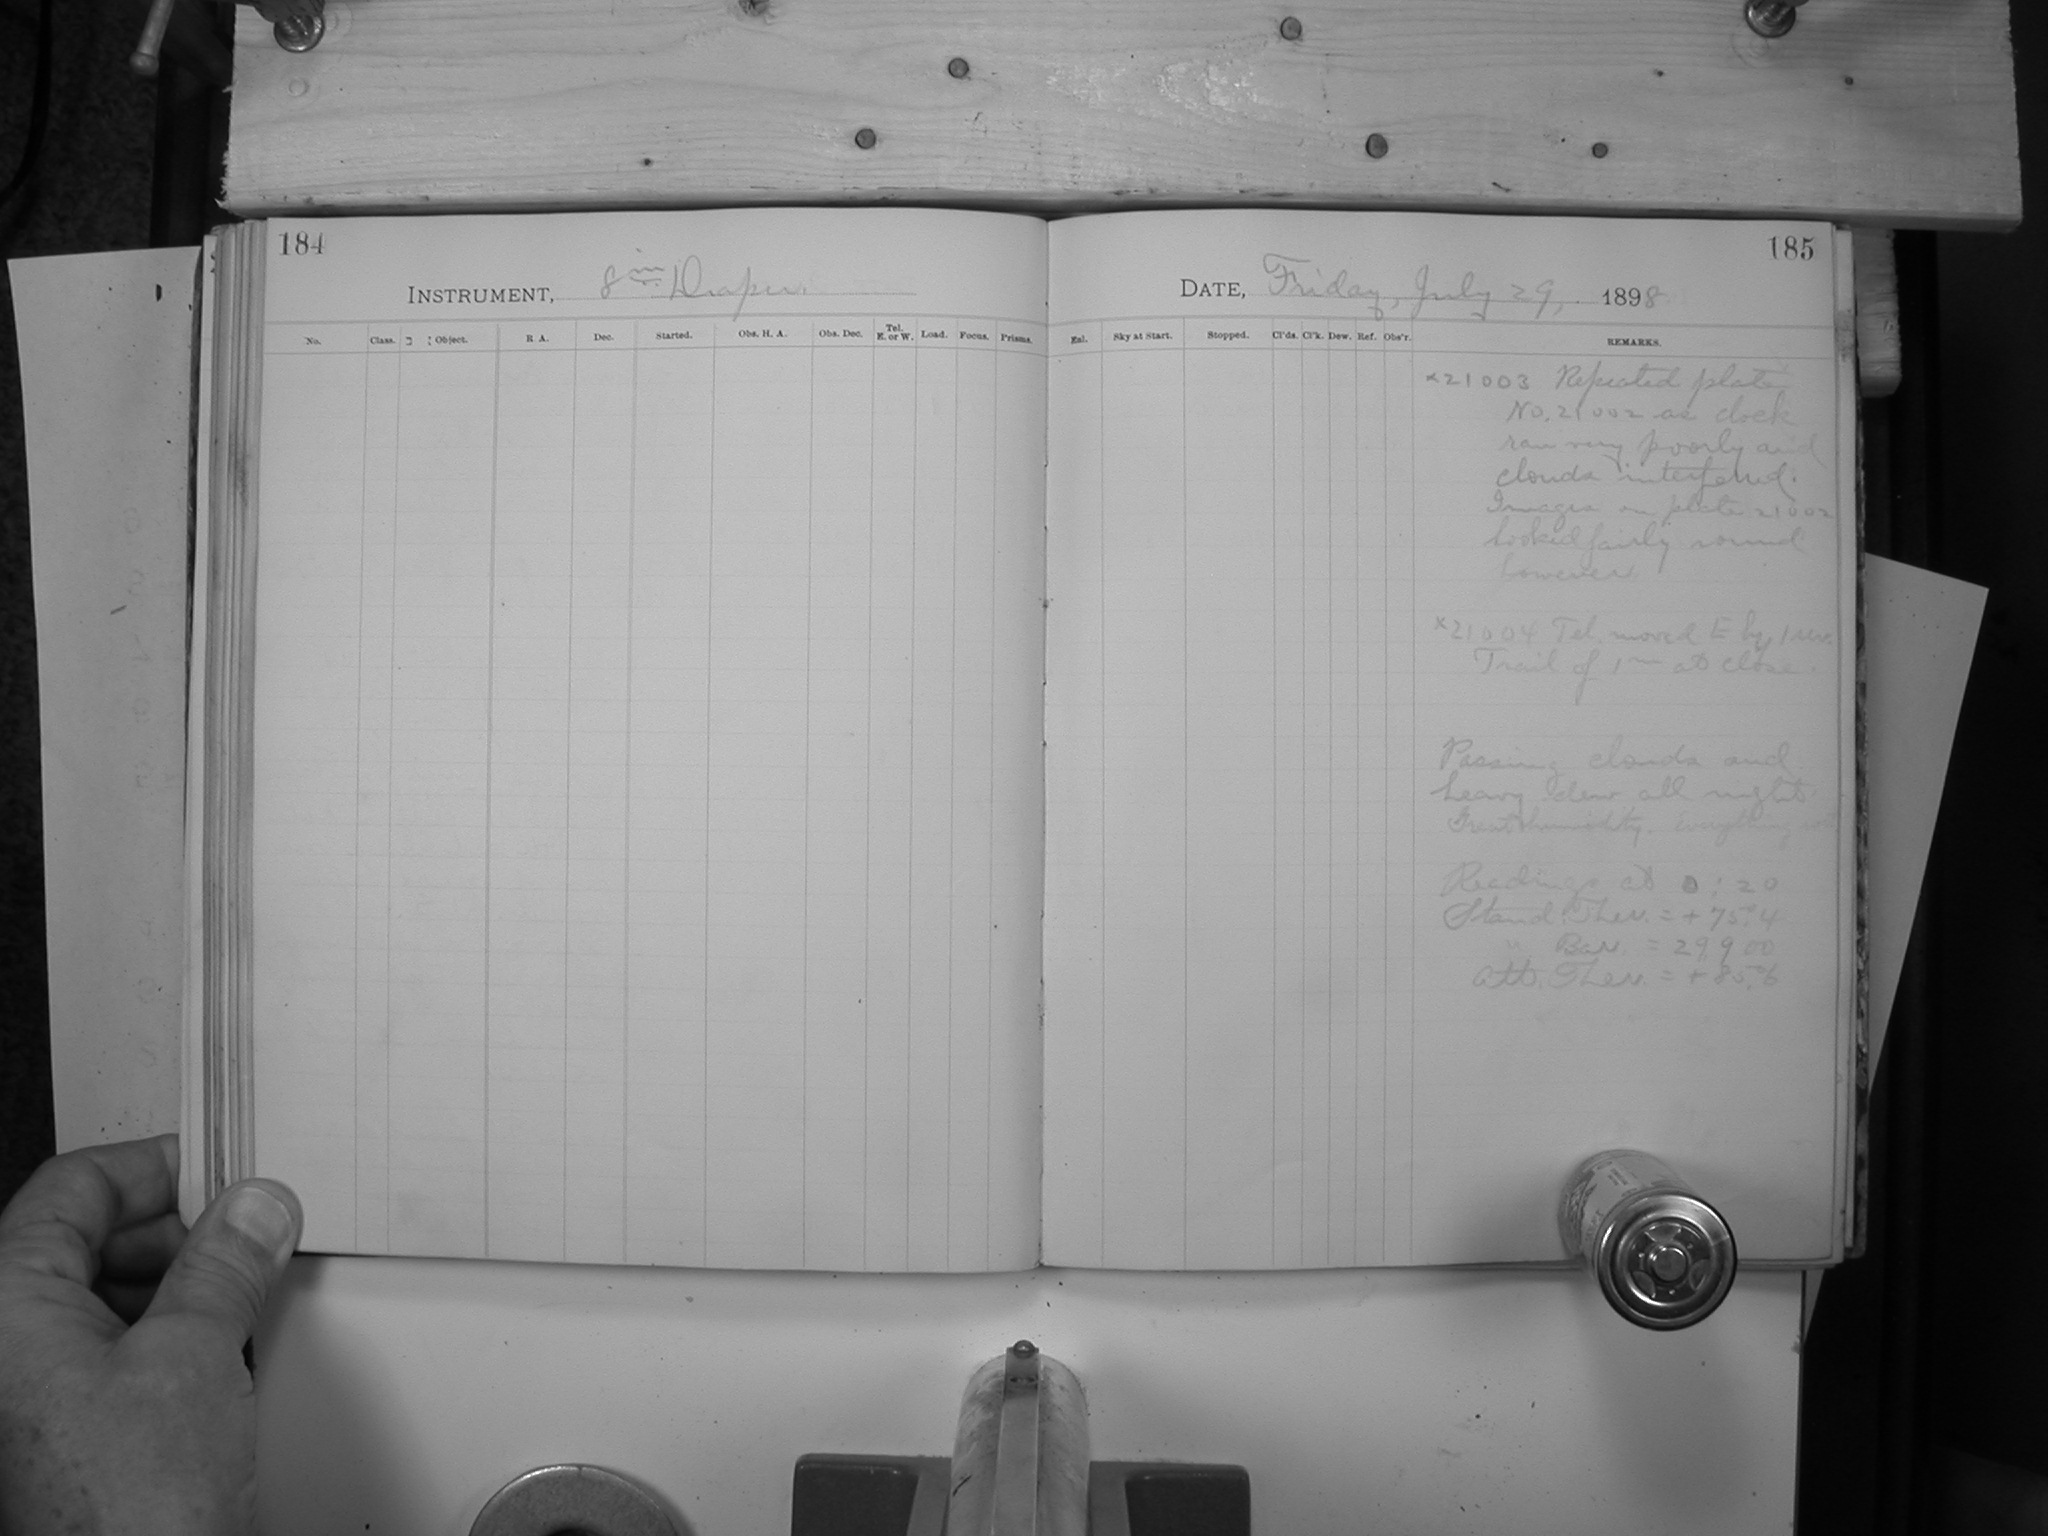 184
INSTRUMENT, 8 in. Draper.
No. Class. Object. R. A. Dec. Started. Obs. H. A. Obs. Dec. Tel. E. or W. Load. Focus. Prisms.
185
DATE, Friday, July 29, 1898
Exl. Sky at Start. Stopped. Cl'ds. Cl'k. Dew. Ref. Obs'r. REMARKS.
×21003 Repeated plate
No. 21002 as clock
ran very poorly and
clouds interfered.
Images on plate 21002
looked fairly round
however.
×21004 Tel. moved E by 1 rev.
Trail of 1m at close.
Passing clouds and
heavy dew all night.
Great humidity. Everything
Readings at 0:20
Stand. Ther. = +75.°4
" Bar. = 29.900
Att. Ther. = +85.°6